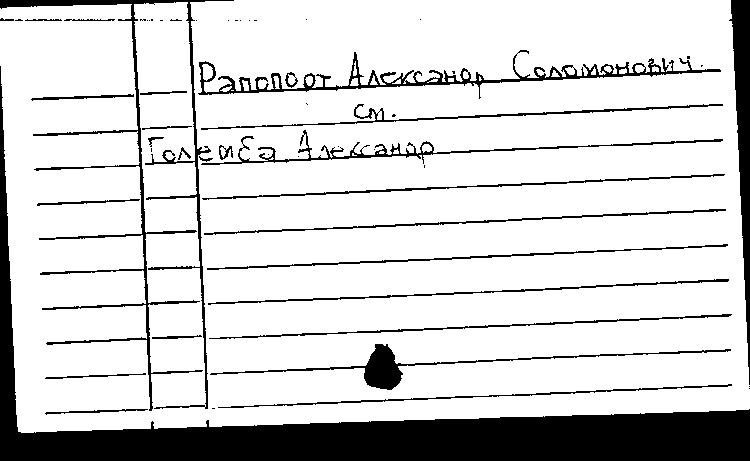 Рапопорт, Александр Соломонович.
см.
Големба, Александр